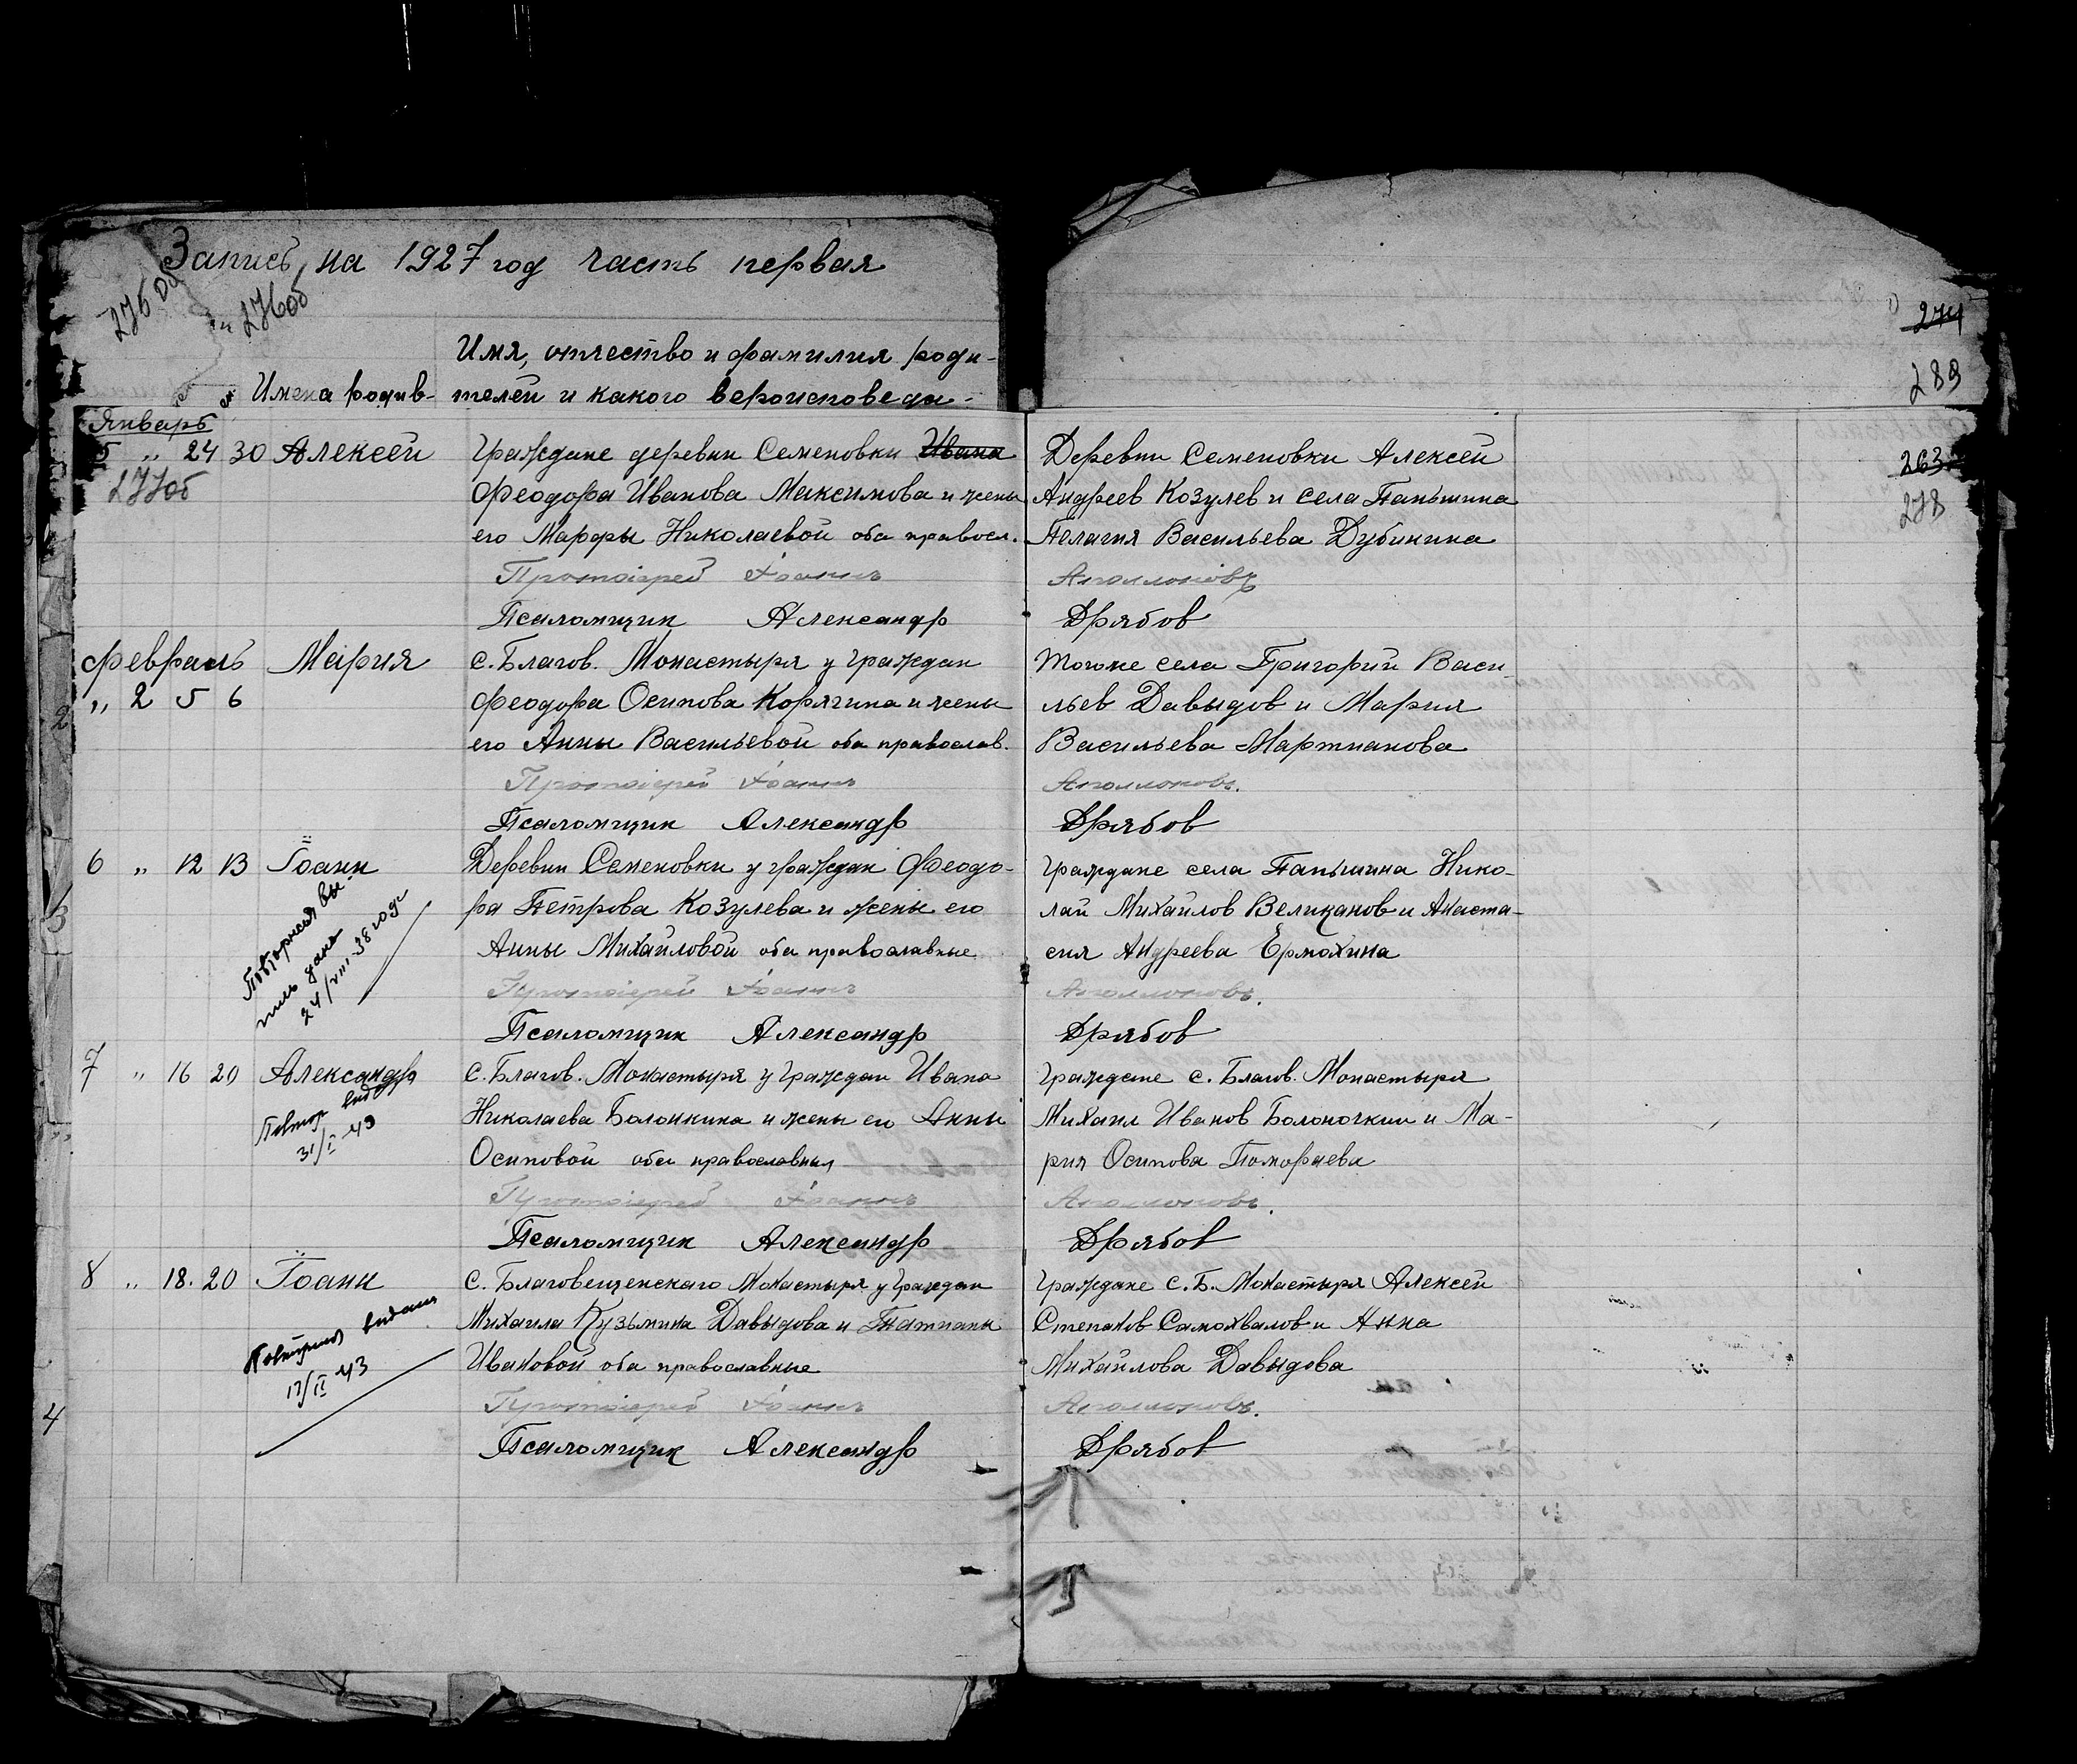 Запись на 1927 год часть первая
276 об
и 276об
274
289
Имя, отчество и фамилия роди-
Имена родив- телей и какого вероисповеда-
Январь
5 „ 24 30 Алексей Граждане деревни Семеновки Ивана Деревни Семеновки Алексей
263
278
277об Феодора Иванова Максимова и жены Андреев Козулев и села Паньшина
его Марфы Николаевой оба правосл. Пелагия Васильева Дубинина
Протоіерей Іоаннъ Аполлоновъ
Псаломщик Александр Дрябов
Февраль Мария с. Благов. Монастыря у граждан тогоже села Григорий Васи
2 „ 2 5 6 Феодора Осипова Корягина и жены льев Давыдов и Мария
его Анны Васильевой оба православ. Васильева Мартианова
Протоіерей Іоаннъ Аполлоновъ.
Псаломщик Александр Дрябов
6 „ 12 13 Іоанн Деревни Семеновки у граждан Феодо- Граждане села Паньшина Нико-
3 ра Петрова Козулева и жены его лай Михайлов Великанов и Анаста-
Анны Михайловой оба православные сия Андреева Ермохина
Повторная вы
пись дана
24/VIII-38 года
Протоіерей Іоаннъ Аполлоновъ.
Псаломщик Александр Дрябов
7 „ 16 20 Александр с. Благов. Монастыря у граждан Ивана Граждане с. Благов. Монастыря
Повтор выд
31/I 43
Николаева Болонкина и жены его Анны Михаил Иванов Болоночкин и Ма-
Осиповой оба православныя рия Осипова Помораева
Протоіерей Іоаннъ Аполлоновъ.
Псаломщик Александр Дрябов
8 „ 18. 20 Іоанн с. Благовещенскаго Монастыря у граждан Граждане с. Б. Монастыря Алексей
Михаила Кузьмина Давыдова и Татианы Степанов Самохвалов и Анна
Повторная выдана
17/II 43
Ивановой оба православные Михайлова Давыдова
4 Протоіерей Іоаннъ Аполлоновъ.
Псаломщик Александр Дрябов